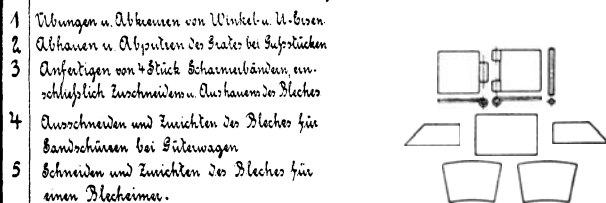 1 Übungen u. Abkreuzen von Winkel- u. U-Eisen.
2 Abhauen u. Abputzen des Grates bei Gußstücken
3 Anfertigen von 4 Stück Scharnierbändern, ein-
schließlich Zuschneidens u. Aushauens des Bleches
4 Ausschneiden und Zurichten des Bleches für
Sandschürzen bei Güterwagen
5 Schneiden und Zurichten des Bleches für
einen Blecheimer.